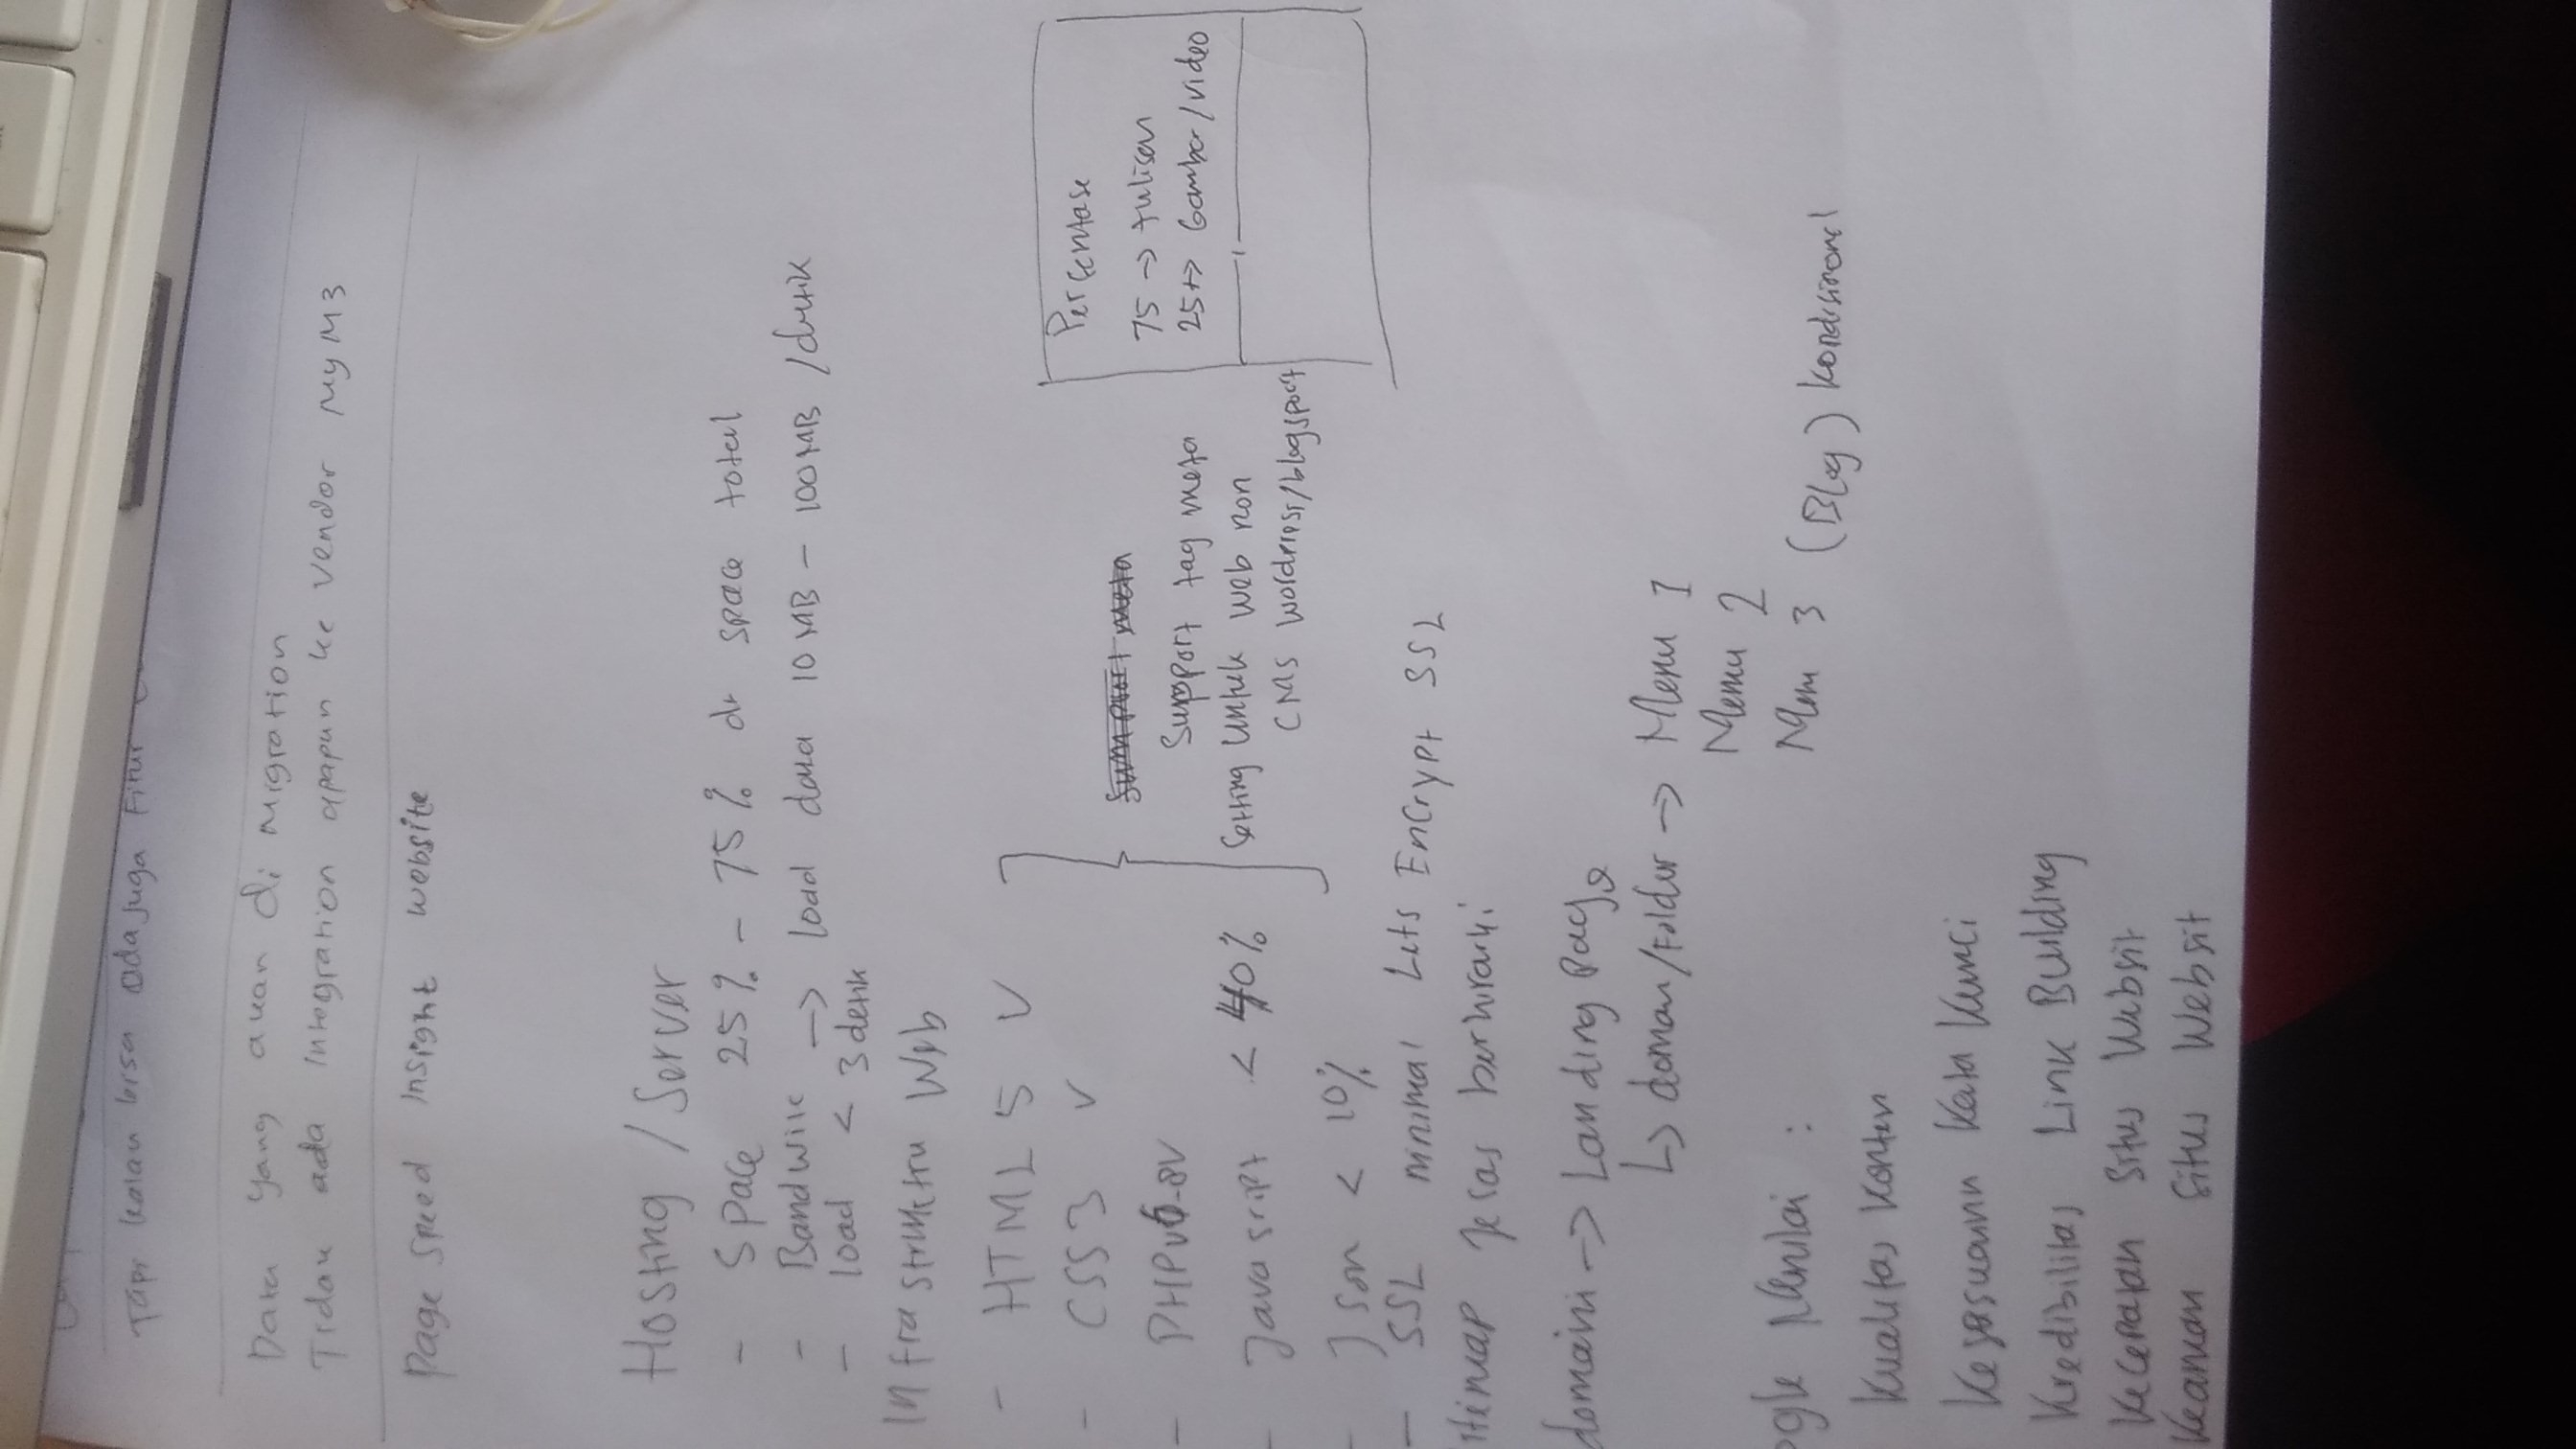 Tapi kalau bisa ada juga Fitur
Data yang akan di migration
Tidak ada integration apapun ke vendor MyM3
Page speed insight website
Hosting / Server
- Space 25% - 75% dr space total
- Bandwite -> load data 10 MB - 100 MB /detik
- load < 3 detik
Infrastruktru Web
- HTML 5 V
- CSS3 V
- PHP
- Java sript < 40%
- Json < 10%
- SSL minimal Lets Encrypt SSL
Support tag meta
setting untuk web non
CMS wordpress/blogspot
Persentase
75 -> tulisan
25 -> Gambar/video
itemap jelas berhirarki
domain -> Landing Page
↳ domain/Folder -> Menu 1
Menu 2
Men 3 (Blog) kondisional
ogle Menilai :
Kualitas Konten
Kesesuaian Kata Kunci
Kredibilitas Link Building
Kecepatan Situs Websit
Keaman Situs Websit